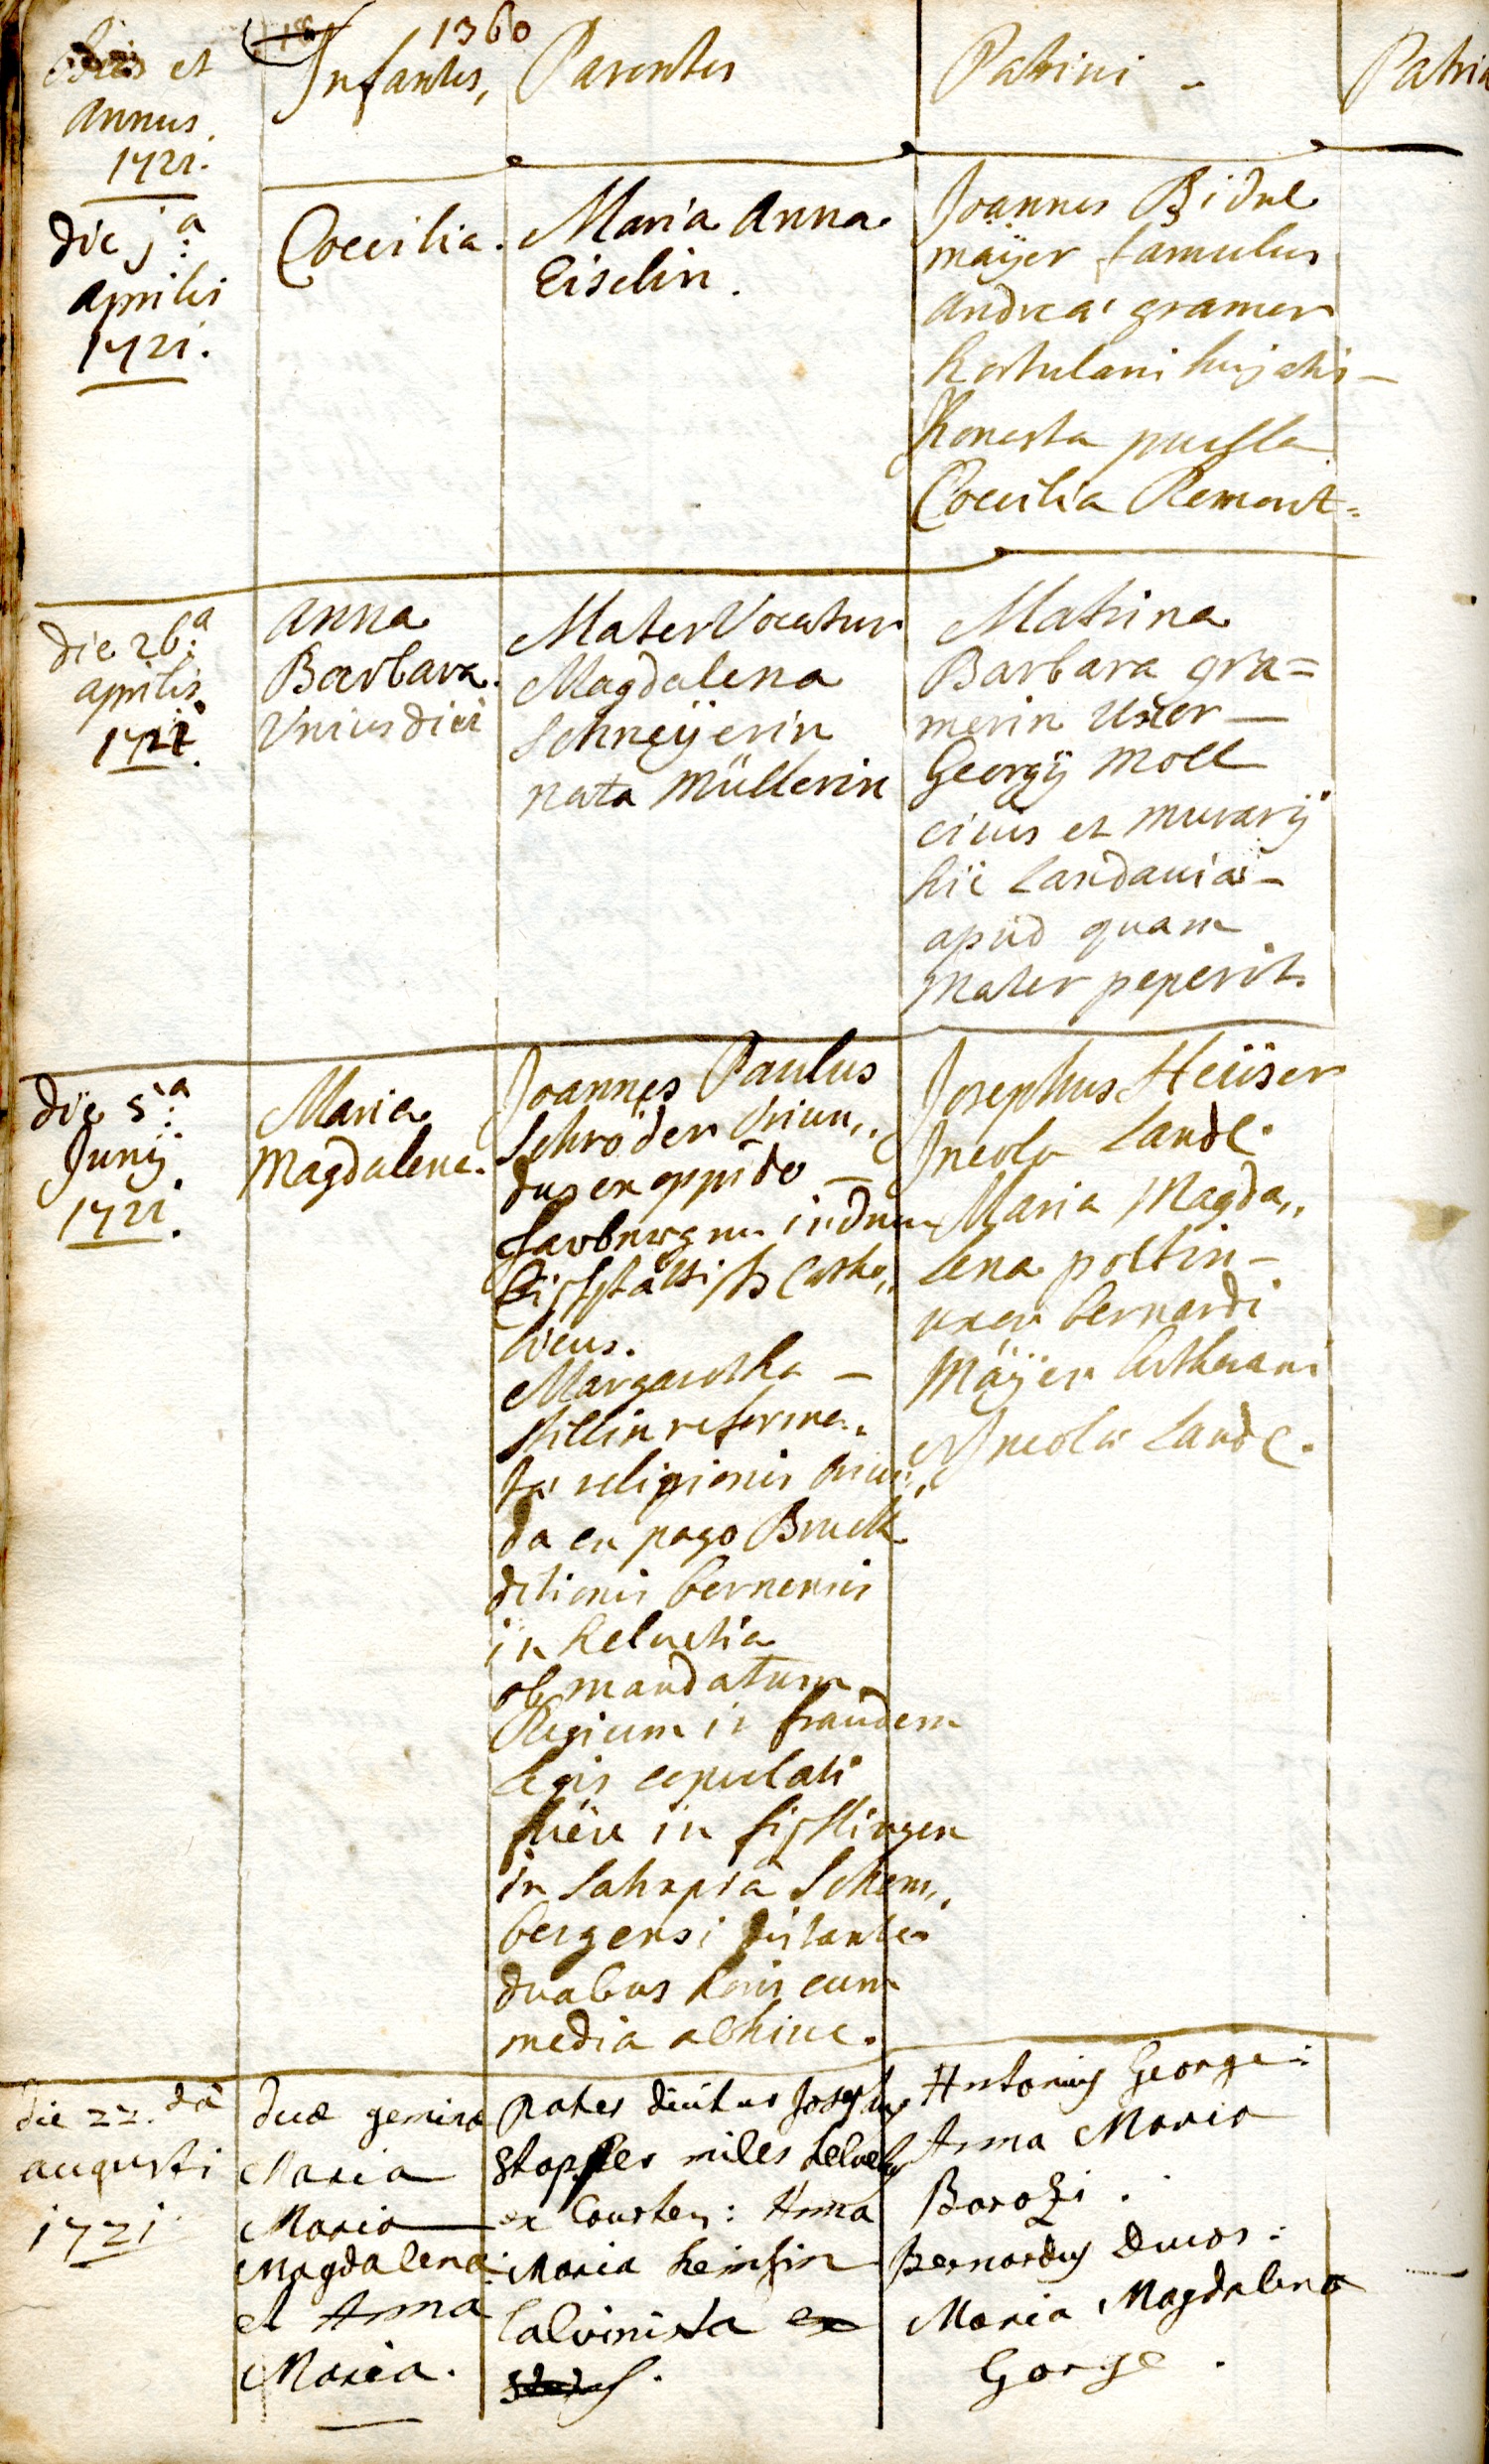 1360
Dies et
annus.
1721.
Infantes,
Parentes
Patrini
Patrin
die 1.a
aprilis
1721.
Coecilia.
Maria Anna
Eiselin.
Joannes Bidel
maÿer famulus
andreæ gramer
hortulani hujatis
honesta puella
Coecilia Remont
die 26.a
aprilis
1721.
Anna
Barbara.
Unius diei
Mater Vocatur
Magdalena
Schneÿerin
nata Müllerin
Matrina
Barbara gra=
merin Uxor
Georgÿ Moll
civis et murarÿ
hic Landaviæ
apud quam
mater peperit.
die 5.a
Junÿ
1721.
Maria
Magdalena.
Joannes Paulus
Schröder oriun,,
dus ex oppido
catho,,
licus.
Margaretha
reforma,,
tæ religionis oriun,,
da ex pago Bruck
ditionis bernensis
in helvetia
ob mandatum
Regium in fraudem
legis copulati
fuere in
in
bergensi distante
duabus horis cum
media abhinc.
Josephus Heüser
Incola Land.
Maria Magda,,
lena poltin
uxor bernardi
Maÿer
et Incolæ Land.
die 22.da
augusti
1721
duæ geminæ
Maria
Maria
Magdalena
et Anna
Maria.
Pater dicitur Josephus
Stopfer miles helvetus
ex Courten: Anna
Maria heinsin
Calvinista ex
Antonius George:
Anna Maria
Bernardus Ducos:
Maria Magdalena
George.